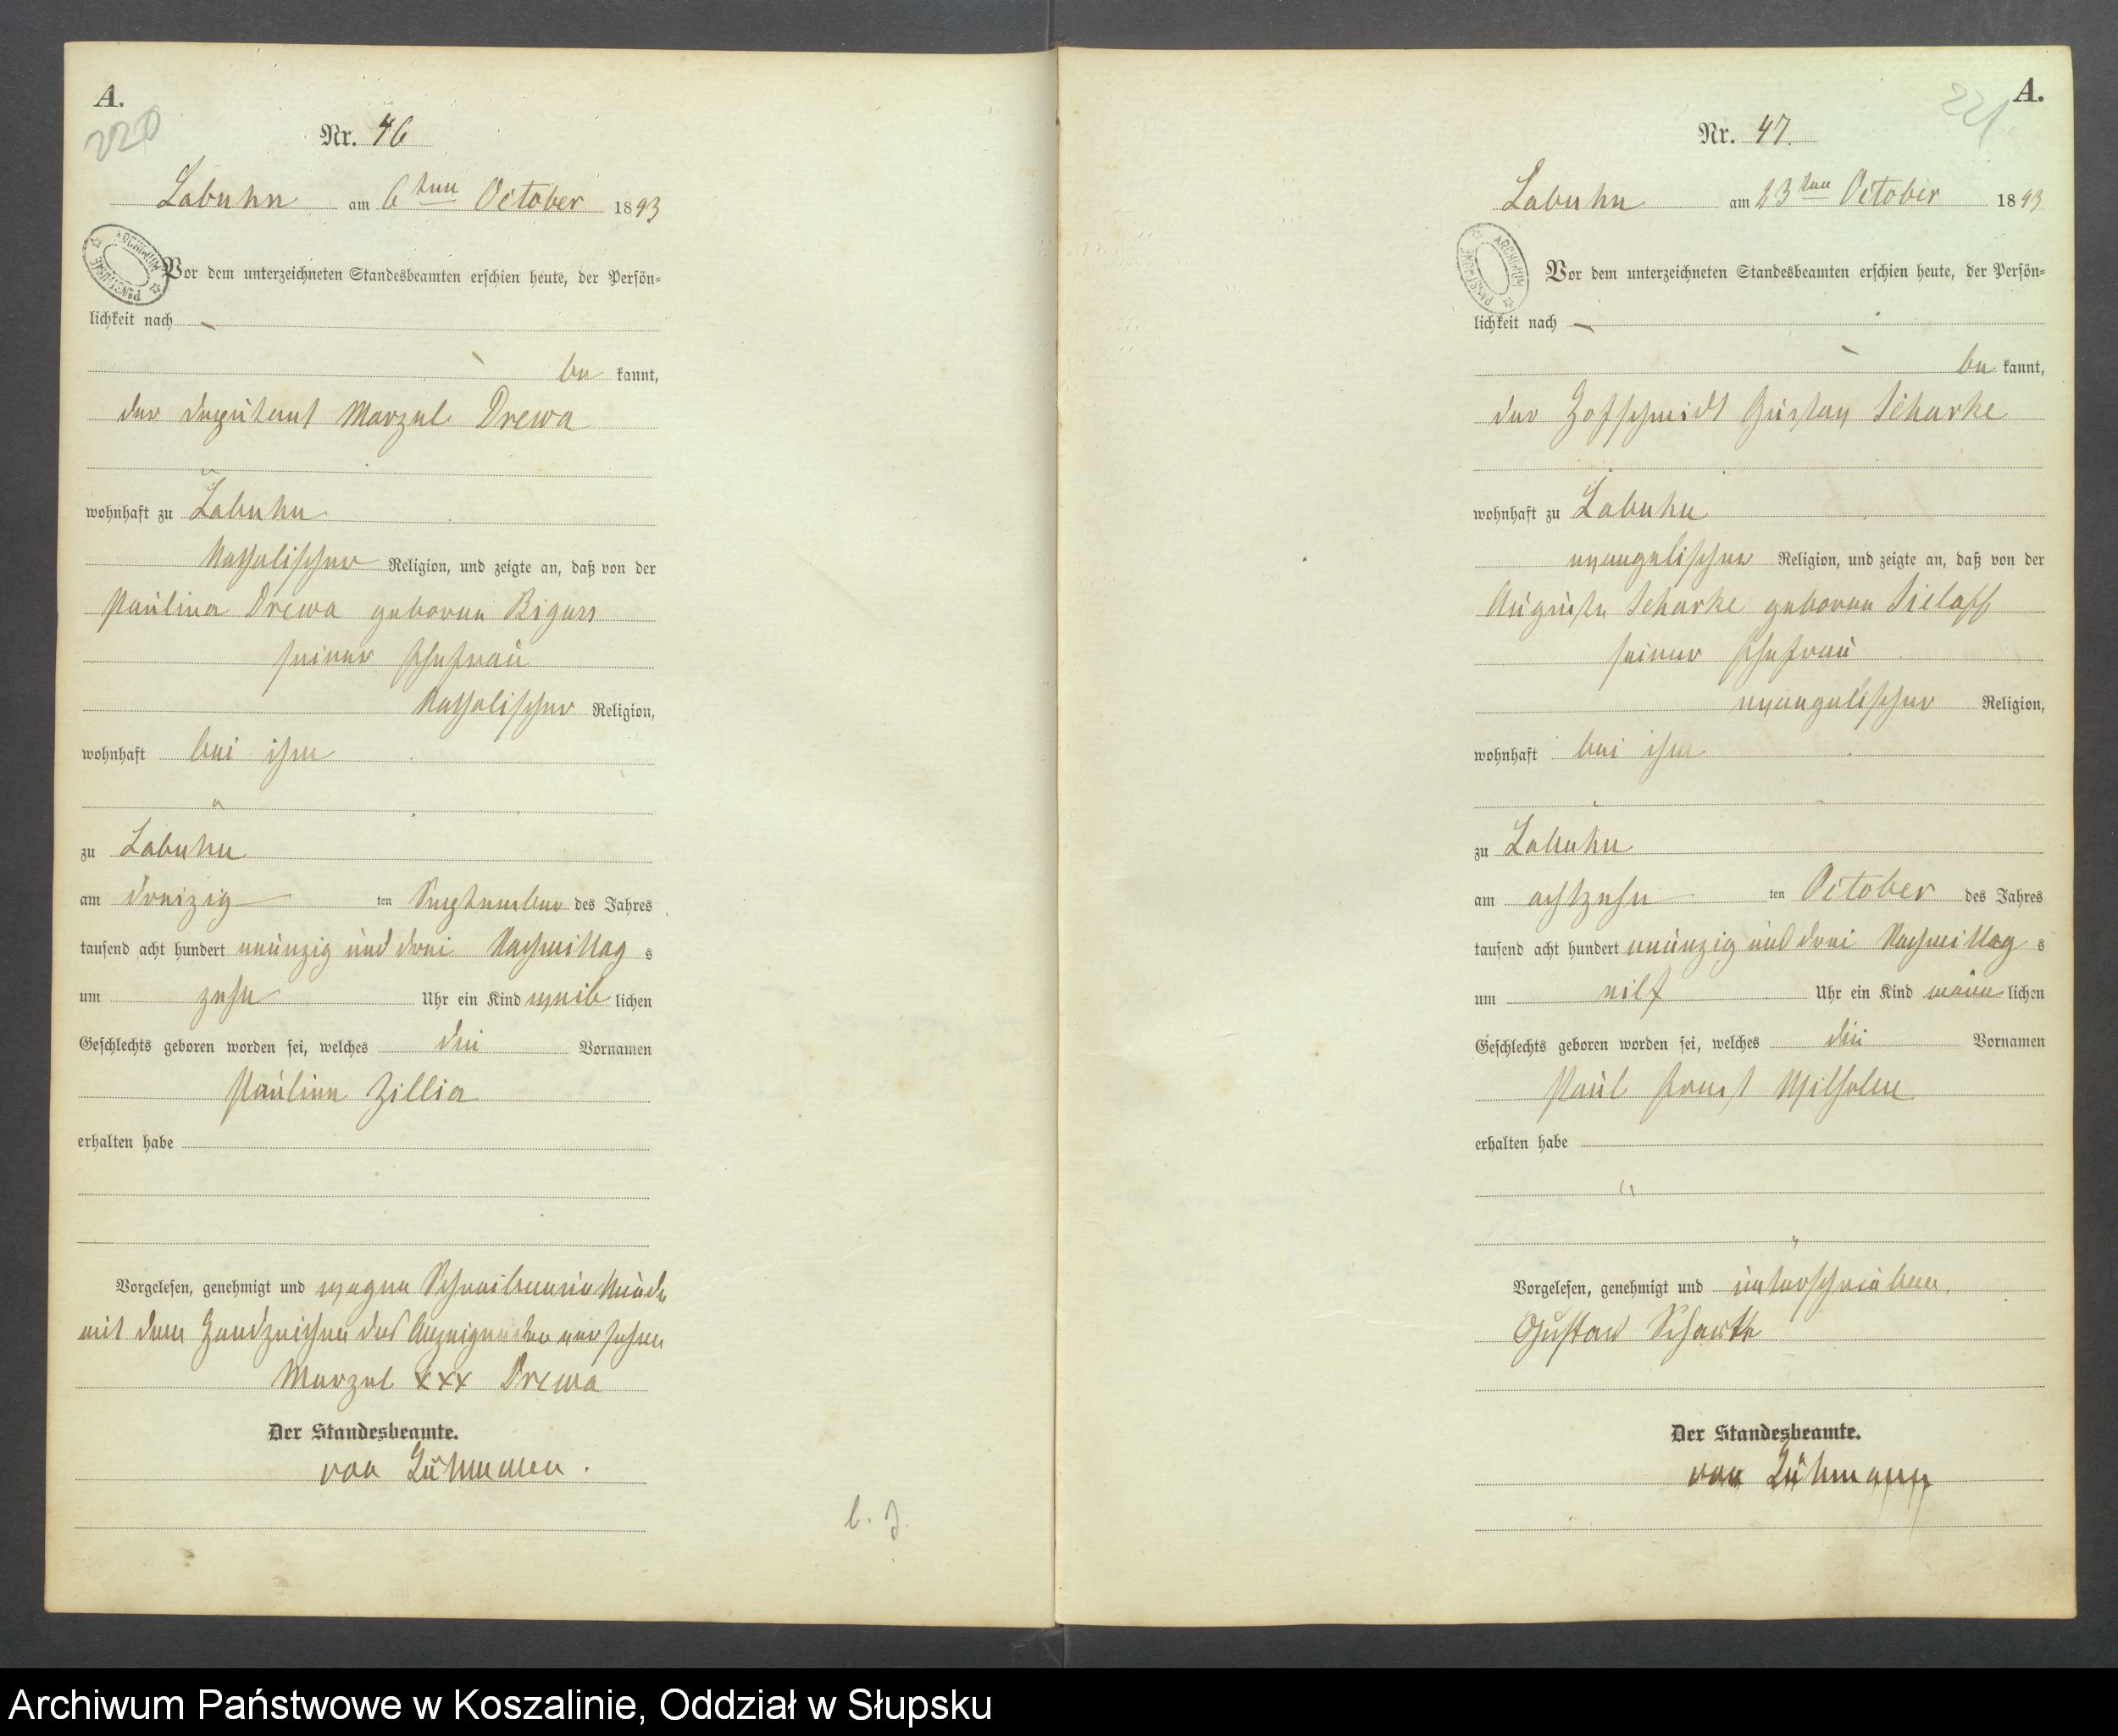 A.
220
Nr. 46
Labuhn am 6ten October 1893
ARCHIWUM PAŃSTWOWE
Vor dem unterzeichneten Standesbeamten erschien heute, der Persön=
lichkeit nach
be kannt,
der Deputant Marzel Drewa
wohnhaft zu Labuhn
katholischer Religion, und zeigte an, daß von der
Paulina Drewa geborene Bigus
seiner Ehefrau
katholischer Religion,
wohnhaft bei ihm
zu Labuhn
am dreizig ten September des Jahres
tausend acht hundert neunzig und drei Nachmittag s
um zehn Uhr ein Kind weib lichen
Geschlechts geboren worden sei, welches die Vornamen
Pauline Zillia
erhalten habe
Vorgelesen, genehmigt und wegen Schreibensunkunde
mit dem Handzeichen des Anzeigenden versehen
Marzel xxx Drewa
Der Standesbeamte.
von Lühmann.
b. J.
A.
221
Nr. 47.
Labuhn am 23ten October 1893
ARCHIWUM PAŃSTWOWE
Vor dem unterzeichneten Standesbeamten erschien heute, der Persön=
lichkeit nach
be kannt,
der Hofschmidt Gustav Scharke
wohnhaft zu Labuhn
evangelischer Religion, und zeigte an, daß von der
Auguste Scharke geborene Sielaff
seiner Ehefrau
evangelischer Religion,
wohnhaft bei ihm
zu Labuhn
am achtzehn ten October des Jahres
tausend acht hundert neunzig und drei Nachmittag s
um elf Uhr ein Kind männ lichen
Geschlechts geboren worden sei, welches die Vornamen
Paul Ernst Wilhelm
erhalten habe
Vorgelesen, genehmigt und unterschrieben.
Gustav Scharke
Der Standesbeamte.
von Lühmann
Archiwum Państwowe w Koszalinie, Oddział w Słupsku